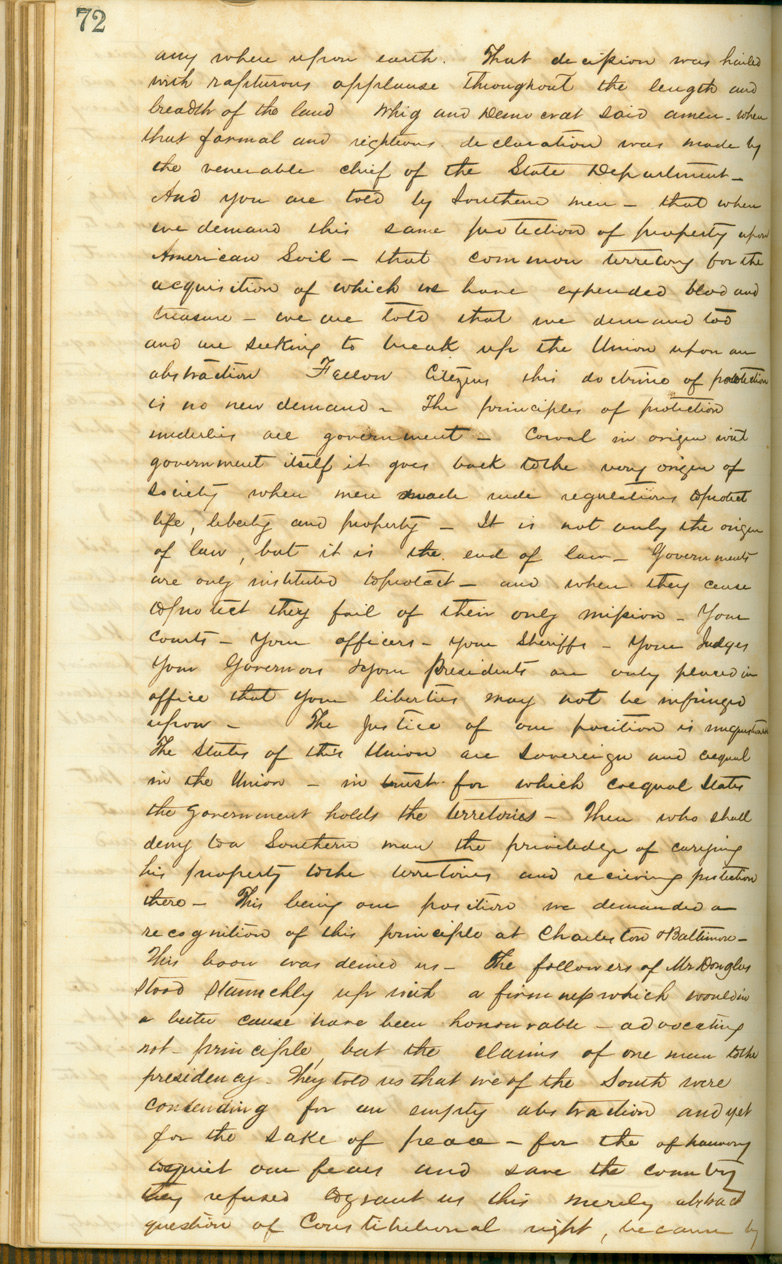 72
any where upon earth. That decision was hailed
with rapturous applause throughout the length and
breadth of the land Whig and Democrat said amen - when
that formal and righteous declaration was made by
the venerable chief of the State Department -
And you are told by Southern men - that when
we demand this same protection of property upon
American Soil - that common territory for the
acquisition of which we have expended blood and
treasure - we are told that we demand too
and are seeking to break up the Union upon an
abstraction Fellow Citizens this doctrine of protection
is no new demand - The principles of protection
underlies all government - Coeval in origin with
government itself it goes back to the very origin of
Society when men made rude regulations to protect
life, liberty and property - It is not only the origin
of law, but it is the end of law - Governments
are only instituted to protect - and when they cease
to protect they fail of their only mission - Your
Courts - your officers - your Sheriffs - your Judges
your Governors & your Presidents are only placed in
office that your liberties may not be infringed
upon - The Justice of our position is unquestioned
The States of this Union are Sovereign and coequal
in the Union - in trust for which coequal States
the Government holds the territories - Then who shall
deny to a Southern man the priviledge of carrying
his property to the territories and recieving protection
there - This being our position we demanded a
recognition of this principle at Charleston & Baltimore -
This boon was denied us - The followers of Mr Douglas
stood staunchly up with a firmness which would in
a better cause have been honourable - advocating
not principle, but the claims of one man to the
presidency. They told us that we of the South were
contending for an empty abstraction and yet
for the sake of peace - for the of harmony
to quiet our fears and save the country
they refused to grant us this merely abstract
question of Constitutional right, because by